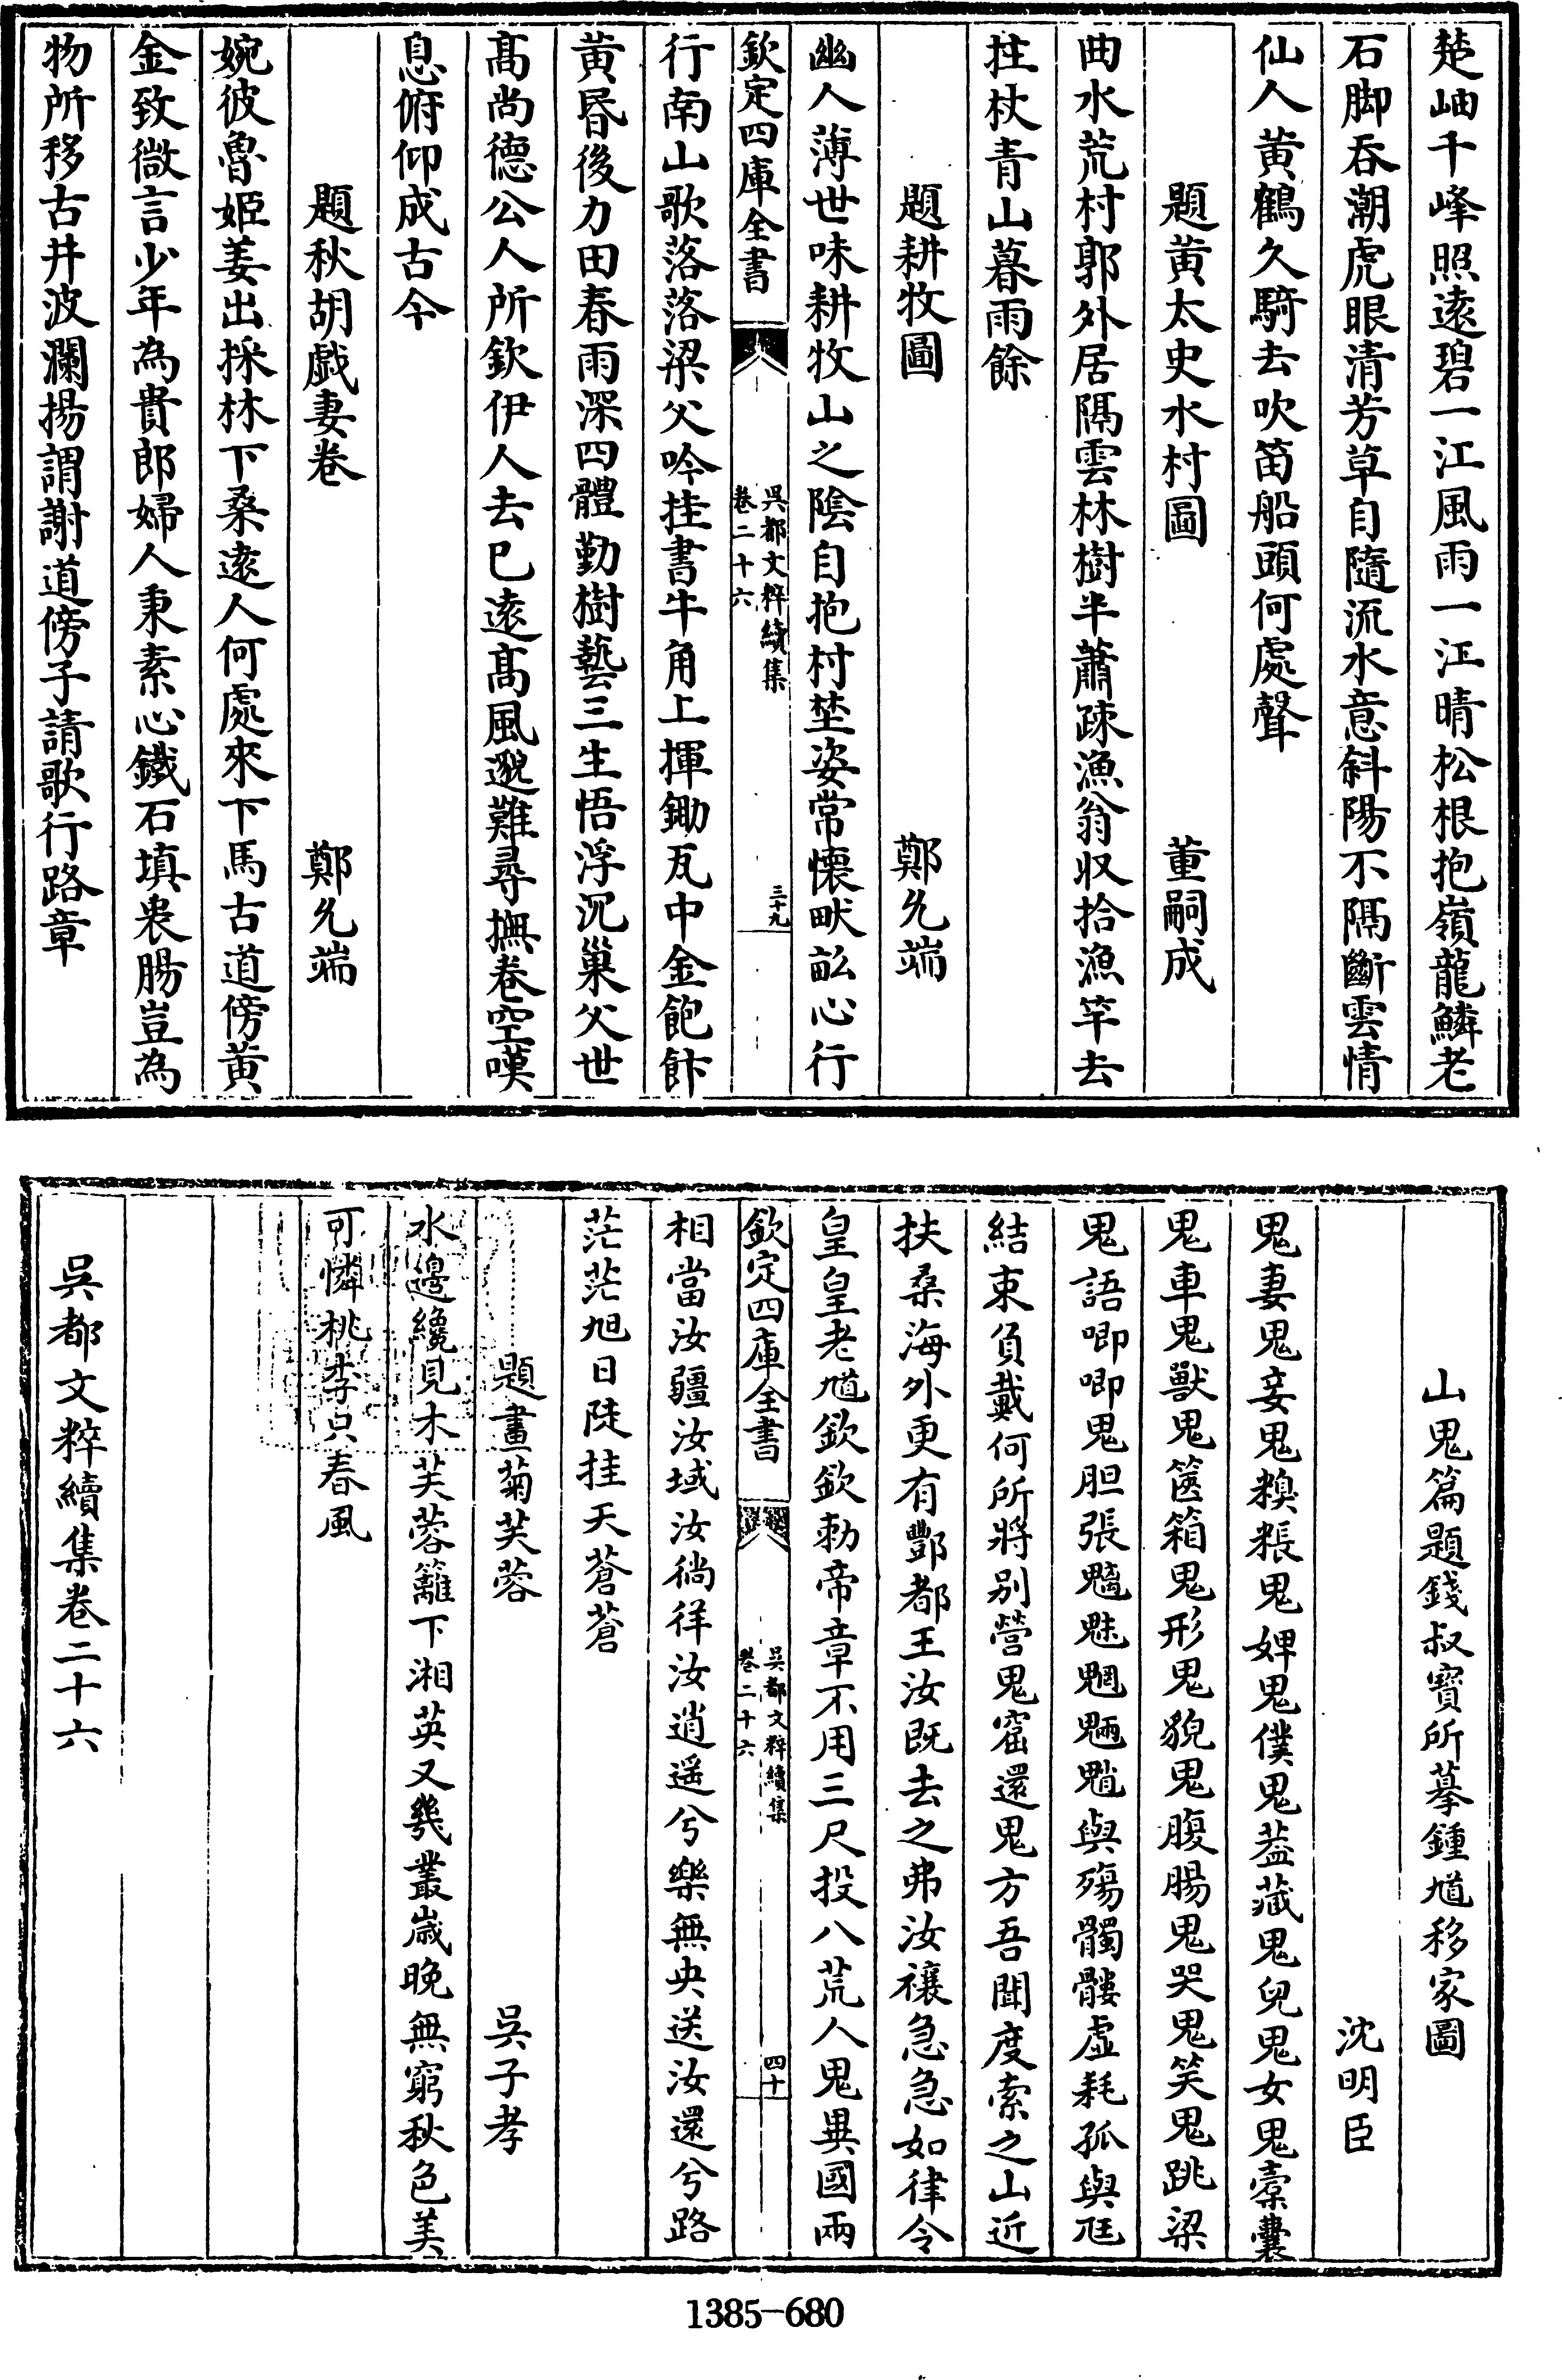 楚岫千峰照遠碧一江風雨一江晴松根抱嶺龍鱗老
石脚吞潮虎眼清芳草自隨流水意斜陽不隔斷雲情
仙人黄鶴久騎去吹笛船頭何處聲
題黄太史水村圖 董嗣成
曲水荒村郭外居隔雲林樹半蕭疎漁翁収拾漁竿去
拄杖青山暮雨餘
題耕牧圖 鄭允端
幽人薄世味耕牧山之陰自抱村埜姿常懷畎畝心行
欽定四庫全書 吳都文粹續集 卷二十六 三十九
行南山歌落落梁父吟挂書牛角上揮鋤瓦中金飽飰
黄昏後力田春雨深四體勤樹藝三生悟浮沉巢父世
髙尚德公人所欽伊人去已遠髙風邈難尋撫卷空嘆
息俯仰成古今
題秋胡戯妻卷 鄭允端
婉彼魯姬姜出採林下桑逺人何處來下馬古道傍黄
金致微言少年為貴郎婦人秉素心鐵石填衷腸豈為
物所移古井波瀾揚謂謝道傍子請歌行路章
山鬼篇題錢叔寶所摹鍾馗移家圖
沈明臣
鬼妻鬼妾鬼糗粻鬼婢鬼僕鬼葢藏鬼兒鬼女鬼橐囊
鬼車鬼獸鬼篋箱鬼形鬼貌鬼腹腸鬼哭鬼笑鬼跳梁
鬼語唧唧鬼胆張魑魅魍魎魈與殤髑髏虛耗孤與尫
結束負戴何所將别營鬼窟還鬼方吾聞度索之山近
扶桑海外更有酆都王汝既去之弗汝禳急急如律令
皇皇老馗欽欽勅帝章不用三尺投八荒人鬼異國兩
欽定四庫全書 吳都文粹續集 卷二十六 四十
相當汝疆汝域汝徜徉汝逍遥兮樂無央送汝還兮路
茫茫旭日陡挂天蒼蒼
題畫菊芙蓉 吳子孝
水邊纔見木芙蓉籬下湘英又幾叢歳晚無窮秋色美
可憐桃李只春風
吳都文粹續集卷二十六
1385-680